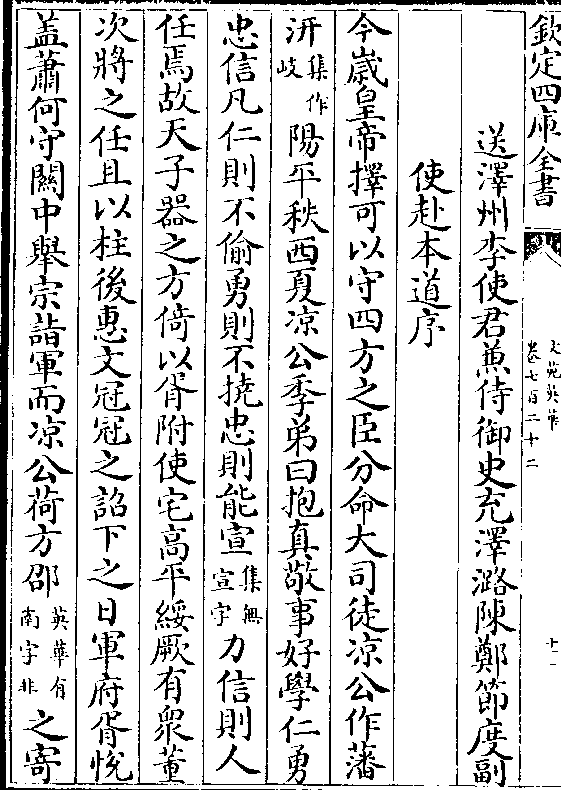 欽定四庫全書
文苑英華
卷七百二十二
十一
送澤州李使君兼侍御史充澤潞陳鄭節度副
使赴本道序
今嵗皇帝擇可以守四方之臣分命大司徒凉公作藩
汧集作岐陽平秩西夏凉公季弟曰抱真敬事好學仁勇
忠信凡仁則不偷勇則不撓忠則能宣集無宣字力信則人
任焉故天子器之方倚以胥附使宅高平綏厥有衆董
次將之任且以柱後惠文冠冠之詔下之日軍府胥悅
盖蕭何守關中舉宗詣軍而凉公荷方邵英華有南字非之寄